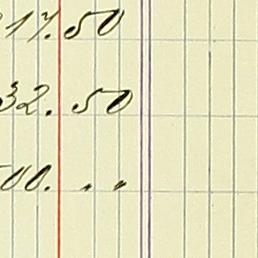 17.50
32.50
00. 〃